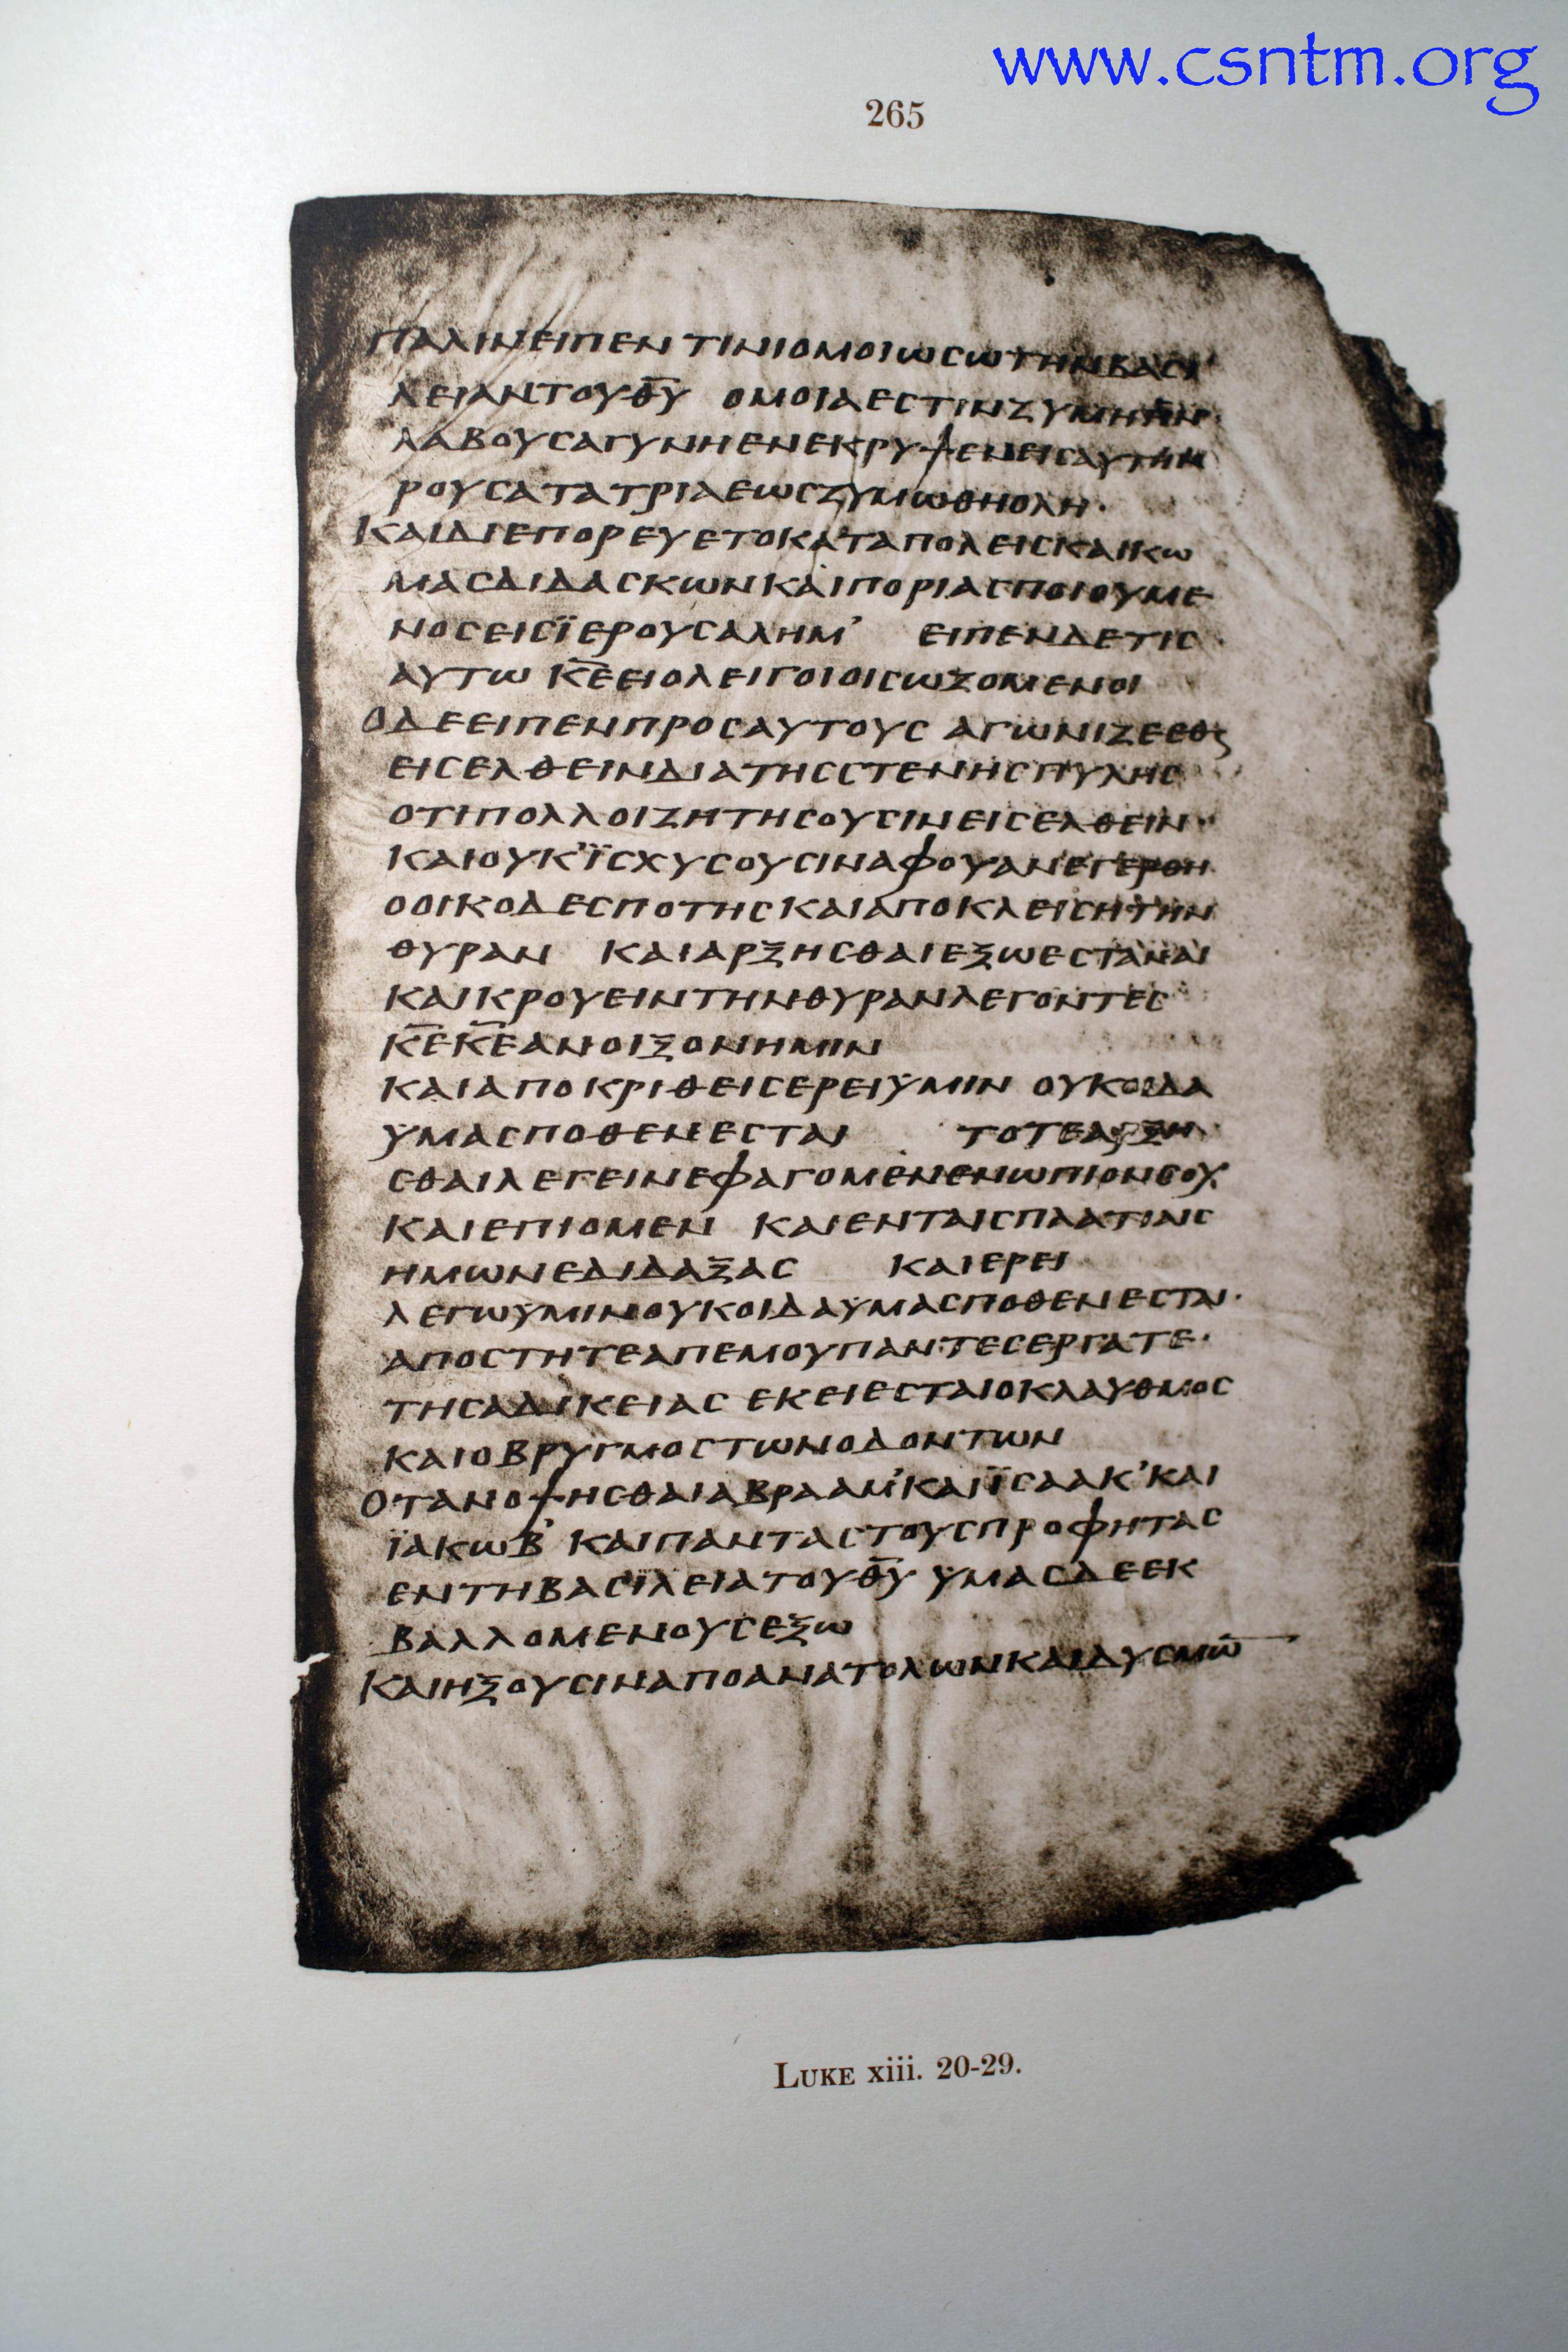 www.csntm.org
265
ΠΑΛΙΝΕΙΠΕΝ ΤΙΝΙΟΜΟΙΩСΩΤΗΝΒΑСΙ
ΛΕΙΑΝΤΟΥΘ̅Υ̅ ΟΜΟΙΑΕСΤΙΝΖΥΜΗΗΝ
ΛΑΒΟΥСΑΓΥΝΗΕΝΕΚΡΥΨΕΝΕΙСΑΛΕΥ
ΡΟΥСΑΤΑΤΡΙΑΕΩСΖΥΜΩΘΗΟΛΗ·
ΚΑΙΔΙΕΠΟΡΕΥΕΤΟΚΑΤΑΠΟΛΕΙСΚΑΙΚΩ
ΜΑСΔΙΔΑСΚΩΝΚΑΙΠΟΡΙΑСΠΟΙΟΥΜΕ
ΝΟСΕΙСΪΕΡΟΥСΑΛΗΜ’ ΕΙΠΕΝΔΕΤΙС
ΑΥΤΩ Κ̅Ε̅ΕΙΟΛΕΙΓΟΙΟΙСΩΖΟΜΕΝΟΙ
ΟΔΕΕΙΠΕΝΠΡΟСΑΥΤΟΥС ΑΓΩΝΙΖΕСΘΕ
ΕΙСΕΛΘΕΙΝΔΙΑΤΗССΤΕΝΗСΠΥΛΗС
ΟΤΙΠΟΛΛΟΙΖΗΤΗСΟΥСΙΝΕΙСΕΛΘΕΙΝ
ΚΑΙΟΥΚ’ΪСΧΥСΟΥСΙΝΑΦΟΥΑΝΕΓΕΡΘΗ
ΟΟΙΚΟΔΕСΠΟΤΗСΚΑΙΑΠΟΚΛΕΙСΗΤΗΝ
ΘΥΡΑΝ ΚΑΙΑΡΞΗСΘΑΙΕΞΩΕСΤΑΝΑΙ
ΚΑΙΚΡΟΥΕΙΝΤΗΝΘΥΡΑΝΛΕΓΟΝΤΕС
Κ̅Ε̅Κ̅Ε̅ΑΝΟΙΞΟΝΗΜΙΝ
ΚΑΙΑΠΟΚΡΙΘΕΙСΕΡΕΙΫΜΙΝ ΟΥΚΟΙΔΑ
ΫΜΑСΠΟΘΕΝΕСΤΑΙ ΤΟΤΕΑΡΞΗ
СΘΑΙΛΕΓΕΙΝΕΦΑΓΟΜΕΝΕΝΩΠΙΟΝСΟΥ
ΚΑΙΕΠΙΟΜΕΝ ΚΑΙΕΝΤΑΙСΠΛΑΤΙΑΙС
ΗΜΩΝΕΔΙΔΑΞΑС ΚΑΙΕΡΕΙ
ΛΕΓΩΫΜΙΝΟΥΚΟΙΔΑΫΜΑСΠΟΘΕΝΕСΤΑΙ·
ΑΠΟСΤΗΤΕΑΠΕΜΟΥΠΑΝΤΕСΕΡΓΑΤΕ·
ΤΗСΑΔΙΚΕΙΑС ΕΚΕΙΕСΤΑΙΟΚΛΑΥΘΜΟС
ΚΑΙΟΒΡΥΓΜΟСΤΩΝΟΔΟΝΤΩΝ
ΟΤΑΝΟΨΗСΘΑΙΑΒΡΑΑΜ’ΚΑΙΪСΑΑΚ’ΚΑΙ
ΪΑΚΩΒ’ ΚΑΙΠΑΝΤΑСΤΟΥСΠΡΟΦΗΤΑС
ΕΝΤΗΒΑСΪΛΕΙΑΤΟΥΘ̅Υ̅ ΫΜΑСΔΕΕΚ
ΒΑΛΛΟΜΕΝΟΥСΕΞΩ
ΚΑΙΗΞΟΥСΙΝΑΠΟΑΝΑΤΟΛΩΝΚΑΙΔΥСΜΩ̅
LUKE xiii. 20-29.